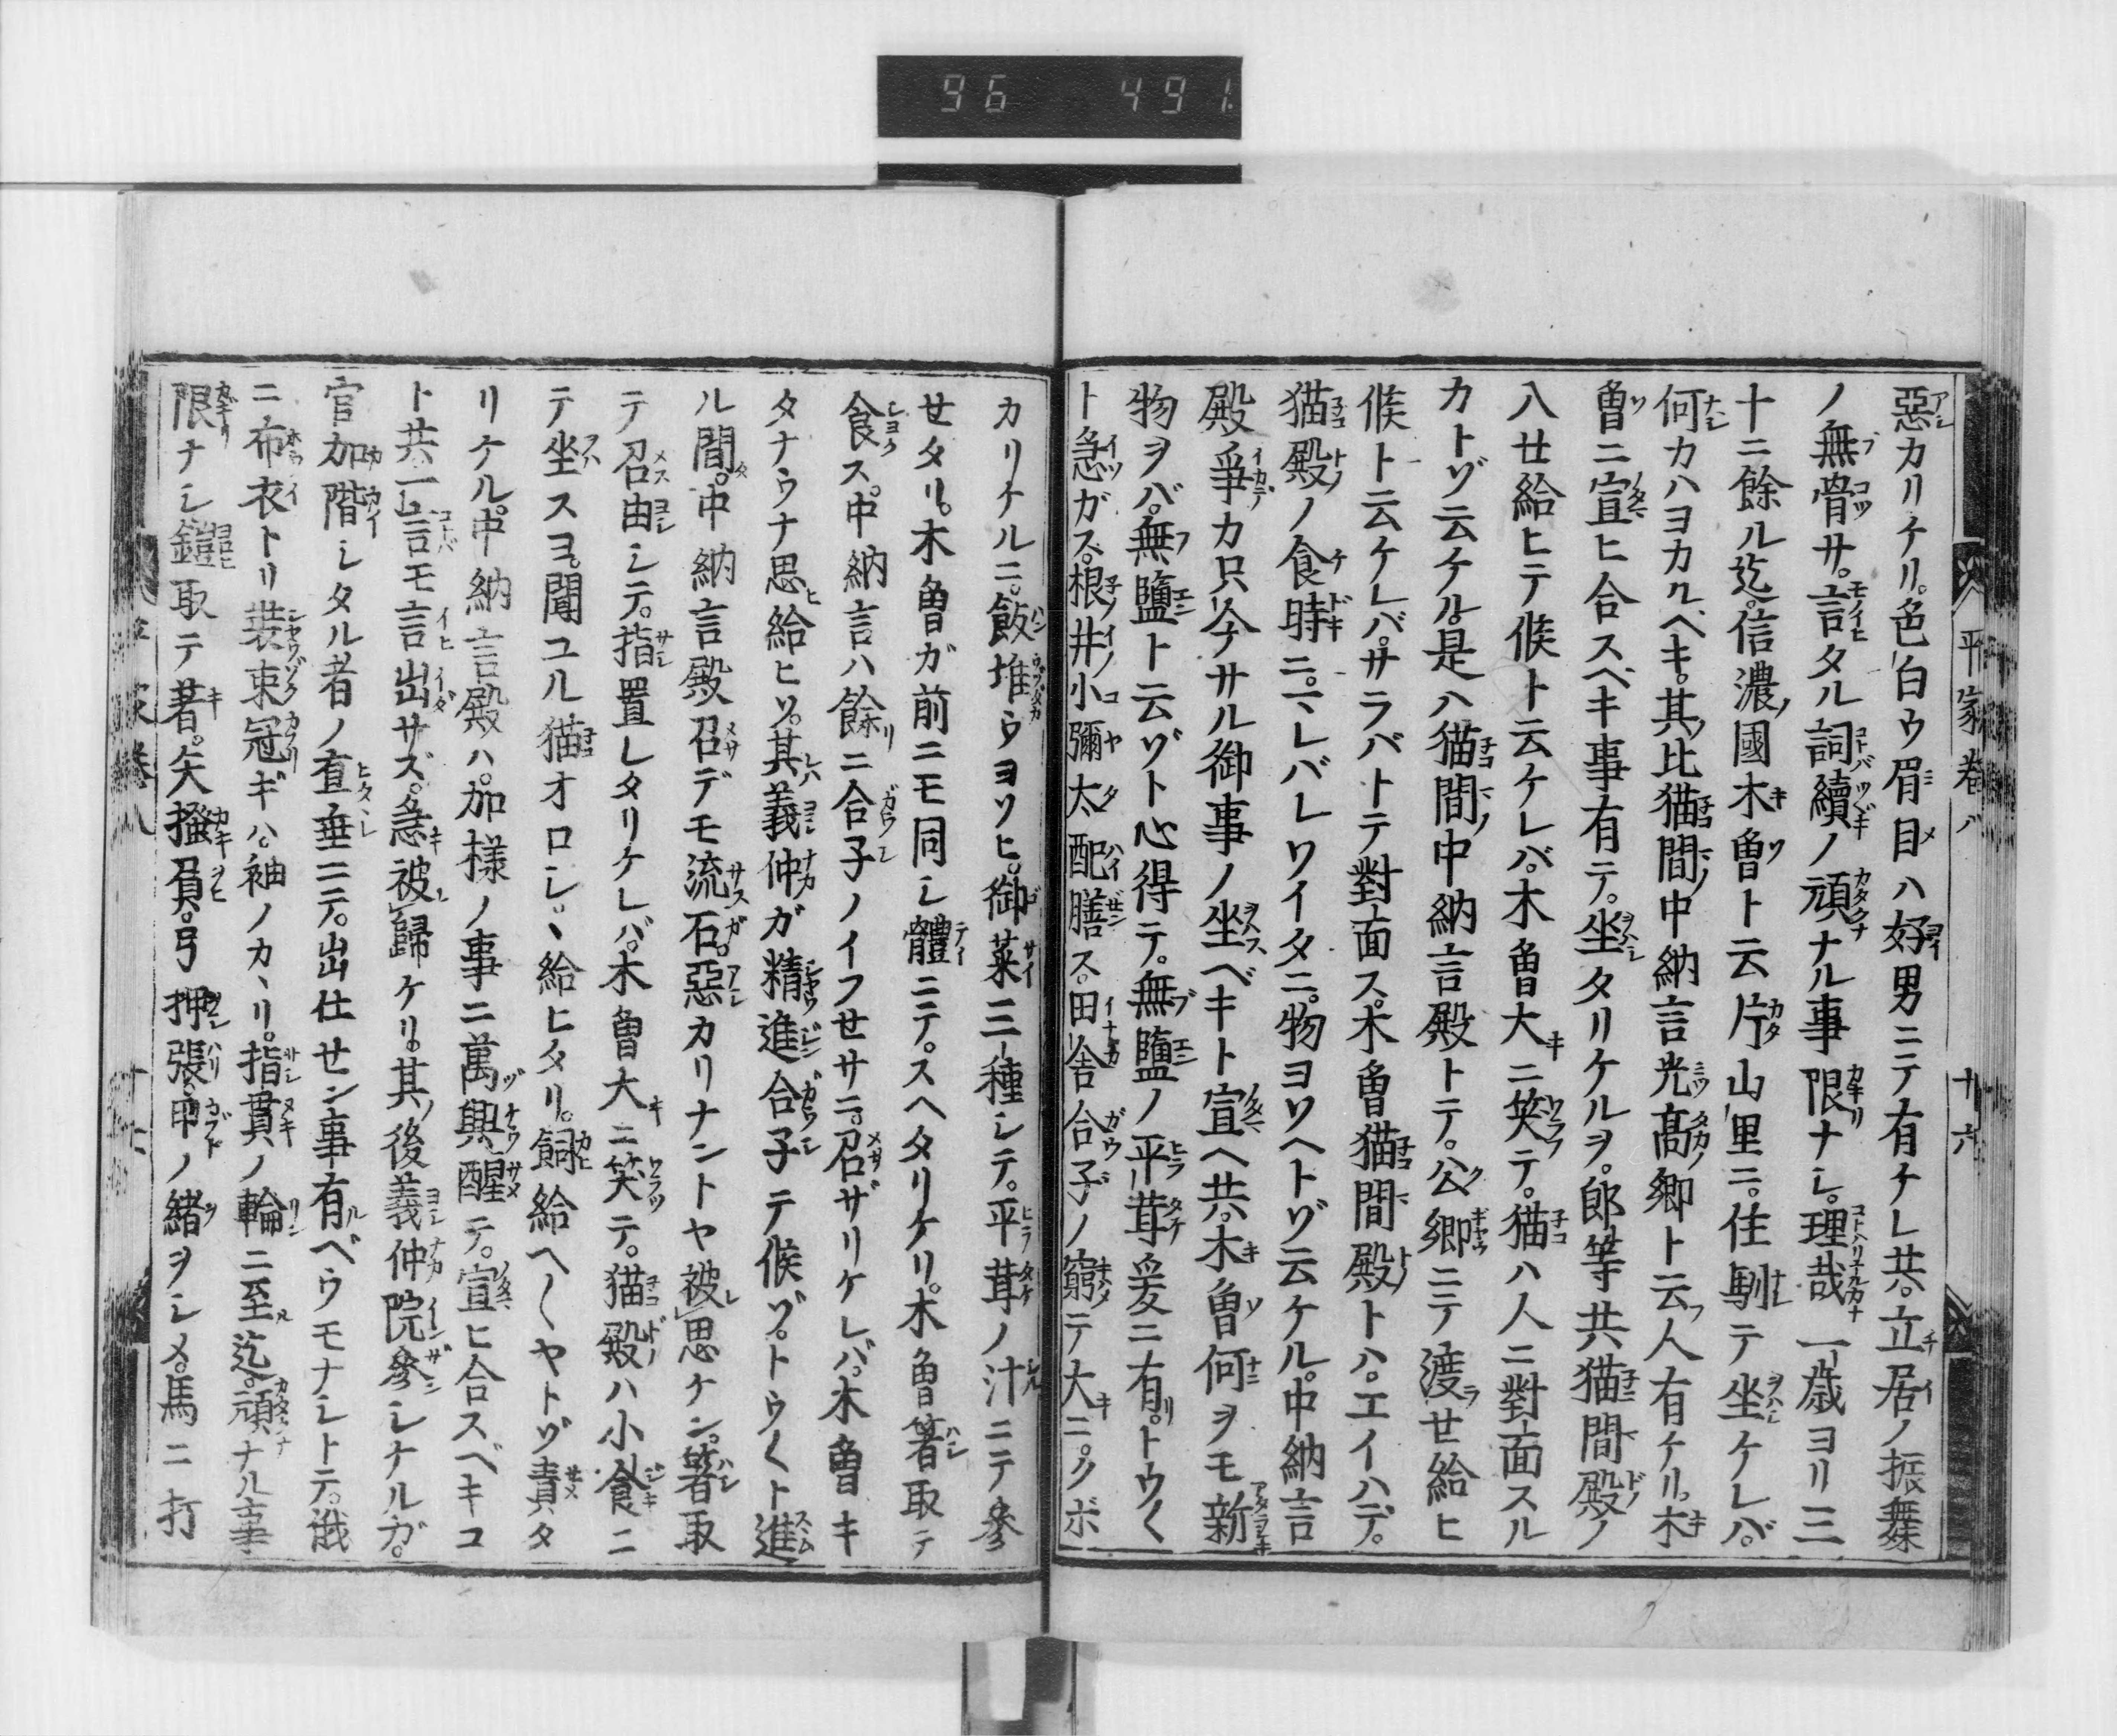 96 491
平家巻八 十六
惡カリケリ。色白ウ眉目ハ好男ニテ有ケレ共。立居ノ振舞
ノ無骨サ。言タル詞續ノ頑ナル事限ナシ。理哉一歳ヨリ三
十ニ餘ル迄。信濃國木曾ト云片山里ニ。住馴テ坐ケレバ。
何カハヨカルベキ。其比猫間中納言光髙卿ト云人有ケリ。木
曾ニ宣ヒ合スベキ事有テ。坐タリケルヲ。郎等共猫間殿ノ
入セ給ヒテ候ト云ケレバ。木曾大ニ笑テ。猫ハ人ニ對面スル
カトゾ云ケル。是ハ猫間中納言殿トテ。公卿ニテ渡セ給ヒ
候ト云ケレバ。サラバトテ對面ス。木曾猫間殿トハ。エイハデ。
猫殿ノ食時ニ。マレバレワイタニ。物ヨソヘトゾ云ケル。中納言
殿爭カ只今サル御事ノ坐ベキト宣ヘ共。木曾何ヲモ新
物ヲバ。無鹽ト云ゾト心得テ。無鹽ノ平茸爰ニ有。トウ〱
ト急ガス。根井ノ小彌太配膳ス。田舎合子ノ窮テ大ニ。クボ
カリケルニ。飯堆ウヨソヒ。御菜三種シテ。平茸ノ汁ニテ參
セタリ。木曾ガ前ニモ同シ體ニテ。スヘタリケリ。木曾箸取テ
食ス。中納言ハ餘ニ合子ノイフセサニ。召ザリケレバ。木曾キ
タナウナ思給ヒソ。其義仲ガ精進合子テ候ゾ。トウ〱ト進
ル間。中納言殿召デモ流石。惡カリナントヤ被思ケン。箸取
テ召由シテ。指置レタリケレバ。木曾大ニ笑テ。猫殿ハ小食ニ
テ坐スヨ。聞ユル猫オロシヽ給ヒタリ。飼給ヘ〱ヤトゾ責タ
リケル。中納言殿ハ。加様ノ事ニ萬興醒テ。宣ヒ合スベキコ
ト共一言モ言出サズ。急被歸ケリ。其後義仲院參シナルガ。
官加階シタル者ノ直垂ニテ。出仕セン事有ベウモナシトテ。俄
ニ布衣トリ装束冠ギハ。袖ノカヽリ。指貫ノ輪ニ至迄。頑ナル事
限ナシ。鎧取テ著。矢搔負。弓押張。甲ノ緒ヲシメ。馬ニ打